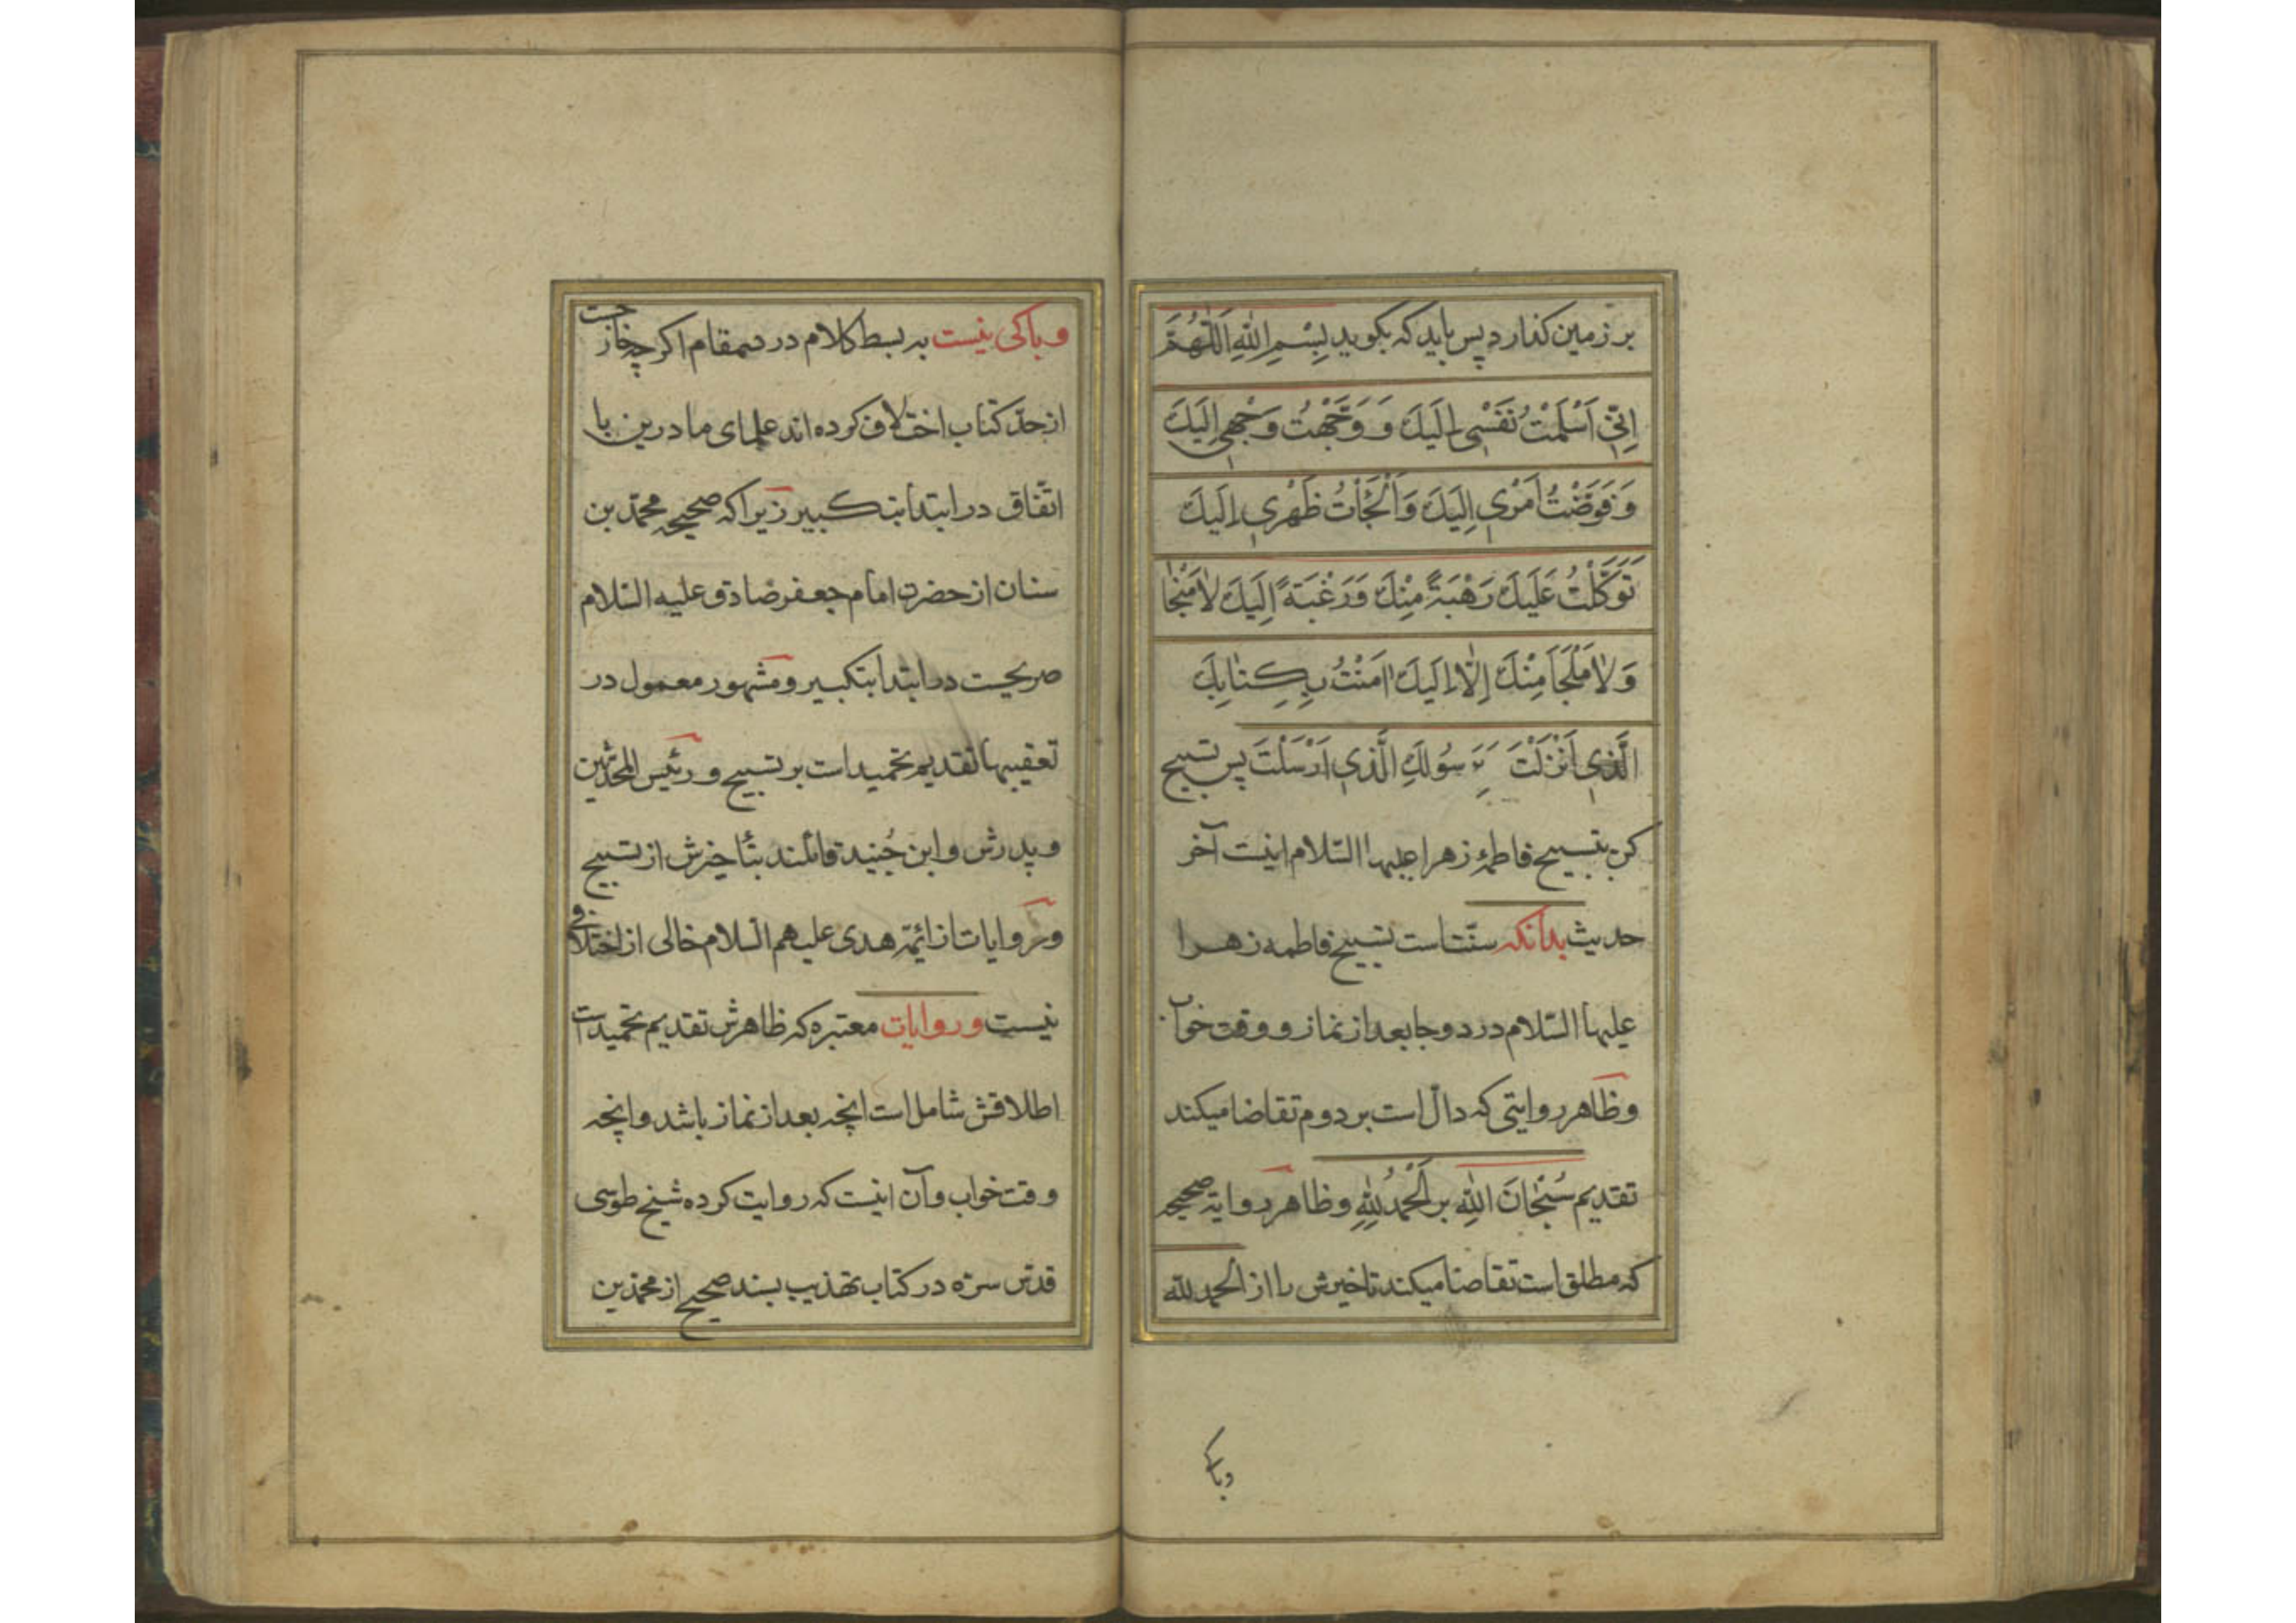 بر زمین کذارد پس باید که بکوید بِسْمِ اللهِ اَللّٰهُمَّ
اِنّي اَسْلَمْتُ نَفْسِي اِلَیكَ وَ وَجَّهْتُ وَجْهِي اِلَیكَ
وَفَوَّضْتُ اَمْري اِلَیكَ وَاَلْجَأْتُ ظَهْري اِلَیكَ
تَوَكَّلْتُ عَلَیكَ رَهْبَةً مِنْكَ وَرَغْبَةً اِلَیكَ لاٰ مَنْجٰا
وَلاٰ مَلْجَأَ مِنْكَ اِلّٰا اِلَیكَ اٰمَنْتُ بِكِتٰابِكَ
الَّذي اَنْزَلْتَ وَ رَسُولِكَ الَّذي اَرْسَلْتَ پس تسبیح
کن بتسبیح فاطمهٔ زهرا علیها السّلام اینست آخر
حدیث بدانکه سنّتست تسبیح فاطمه زهرا
علیها السّلام در دو جا بعد از نماز و وقت خواب
وظاهر روایتی که دالّ است بر دوم تقاضا میکند
تقدیم سُبْحٰانَ اللهِ بر اَلْحَمْدُ لِلّٰهِ و ظاهر روایة صحیحه
که مطلق است تقاضا میکند تاخیرش را از الحمد لله
وباکی
وباکی نیست به بسط کلام در دیمقام اکرچه خارجست
از حدّ کتاب اختلاف کرده اند علمای ما درین با
اتّفاق در ابتدا بتکبیر زیرا که صحیحه محمّد بن
سنان از حضرت امام جعفر صادق علیه السّلام
صریحست در ابتدا بتکبیر و مشهور معمول در
تعقیبها تقدیم تحمیداست بر تسبیح و رئیس المحدّثین
و پدرش و ابن جُنید قائلند بتأخیرش از تسبیح
و روایات از ائمّه هدی علیهم السّلام خالی از اختلافی
نیست وروایات معتبره که ظاهرش تقدیم تحمیداست
اطلاقش شامل است انچه بعد از نماز باشد و انچه
وقت خواب وآن اینست که روایت کرده شیخ طوسی
قدّس سرّه در کتاب تهذیب بسند صحیح از محمّد بن